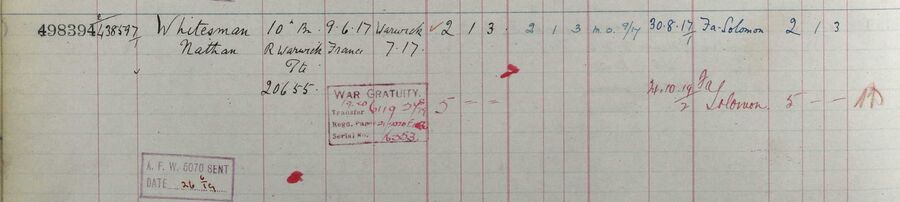 498394 438597/1 Whitesman 10th Bn 9.6.17 Warwick ✓ 2 1 3. 2 1 3 m.o. 9/17 30.8.17/1 Fa-Solomon 2 1 3
Nathan R Warwick France 7.17.
Pte
20655.
WAR GRATUITY. 5 - - 24.10.19/2 Fa Solomon 5 - -
Transfer
Regd. Paper
Serial No.
A. F. W. 5070 SENT
DATE 26 6/19